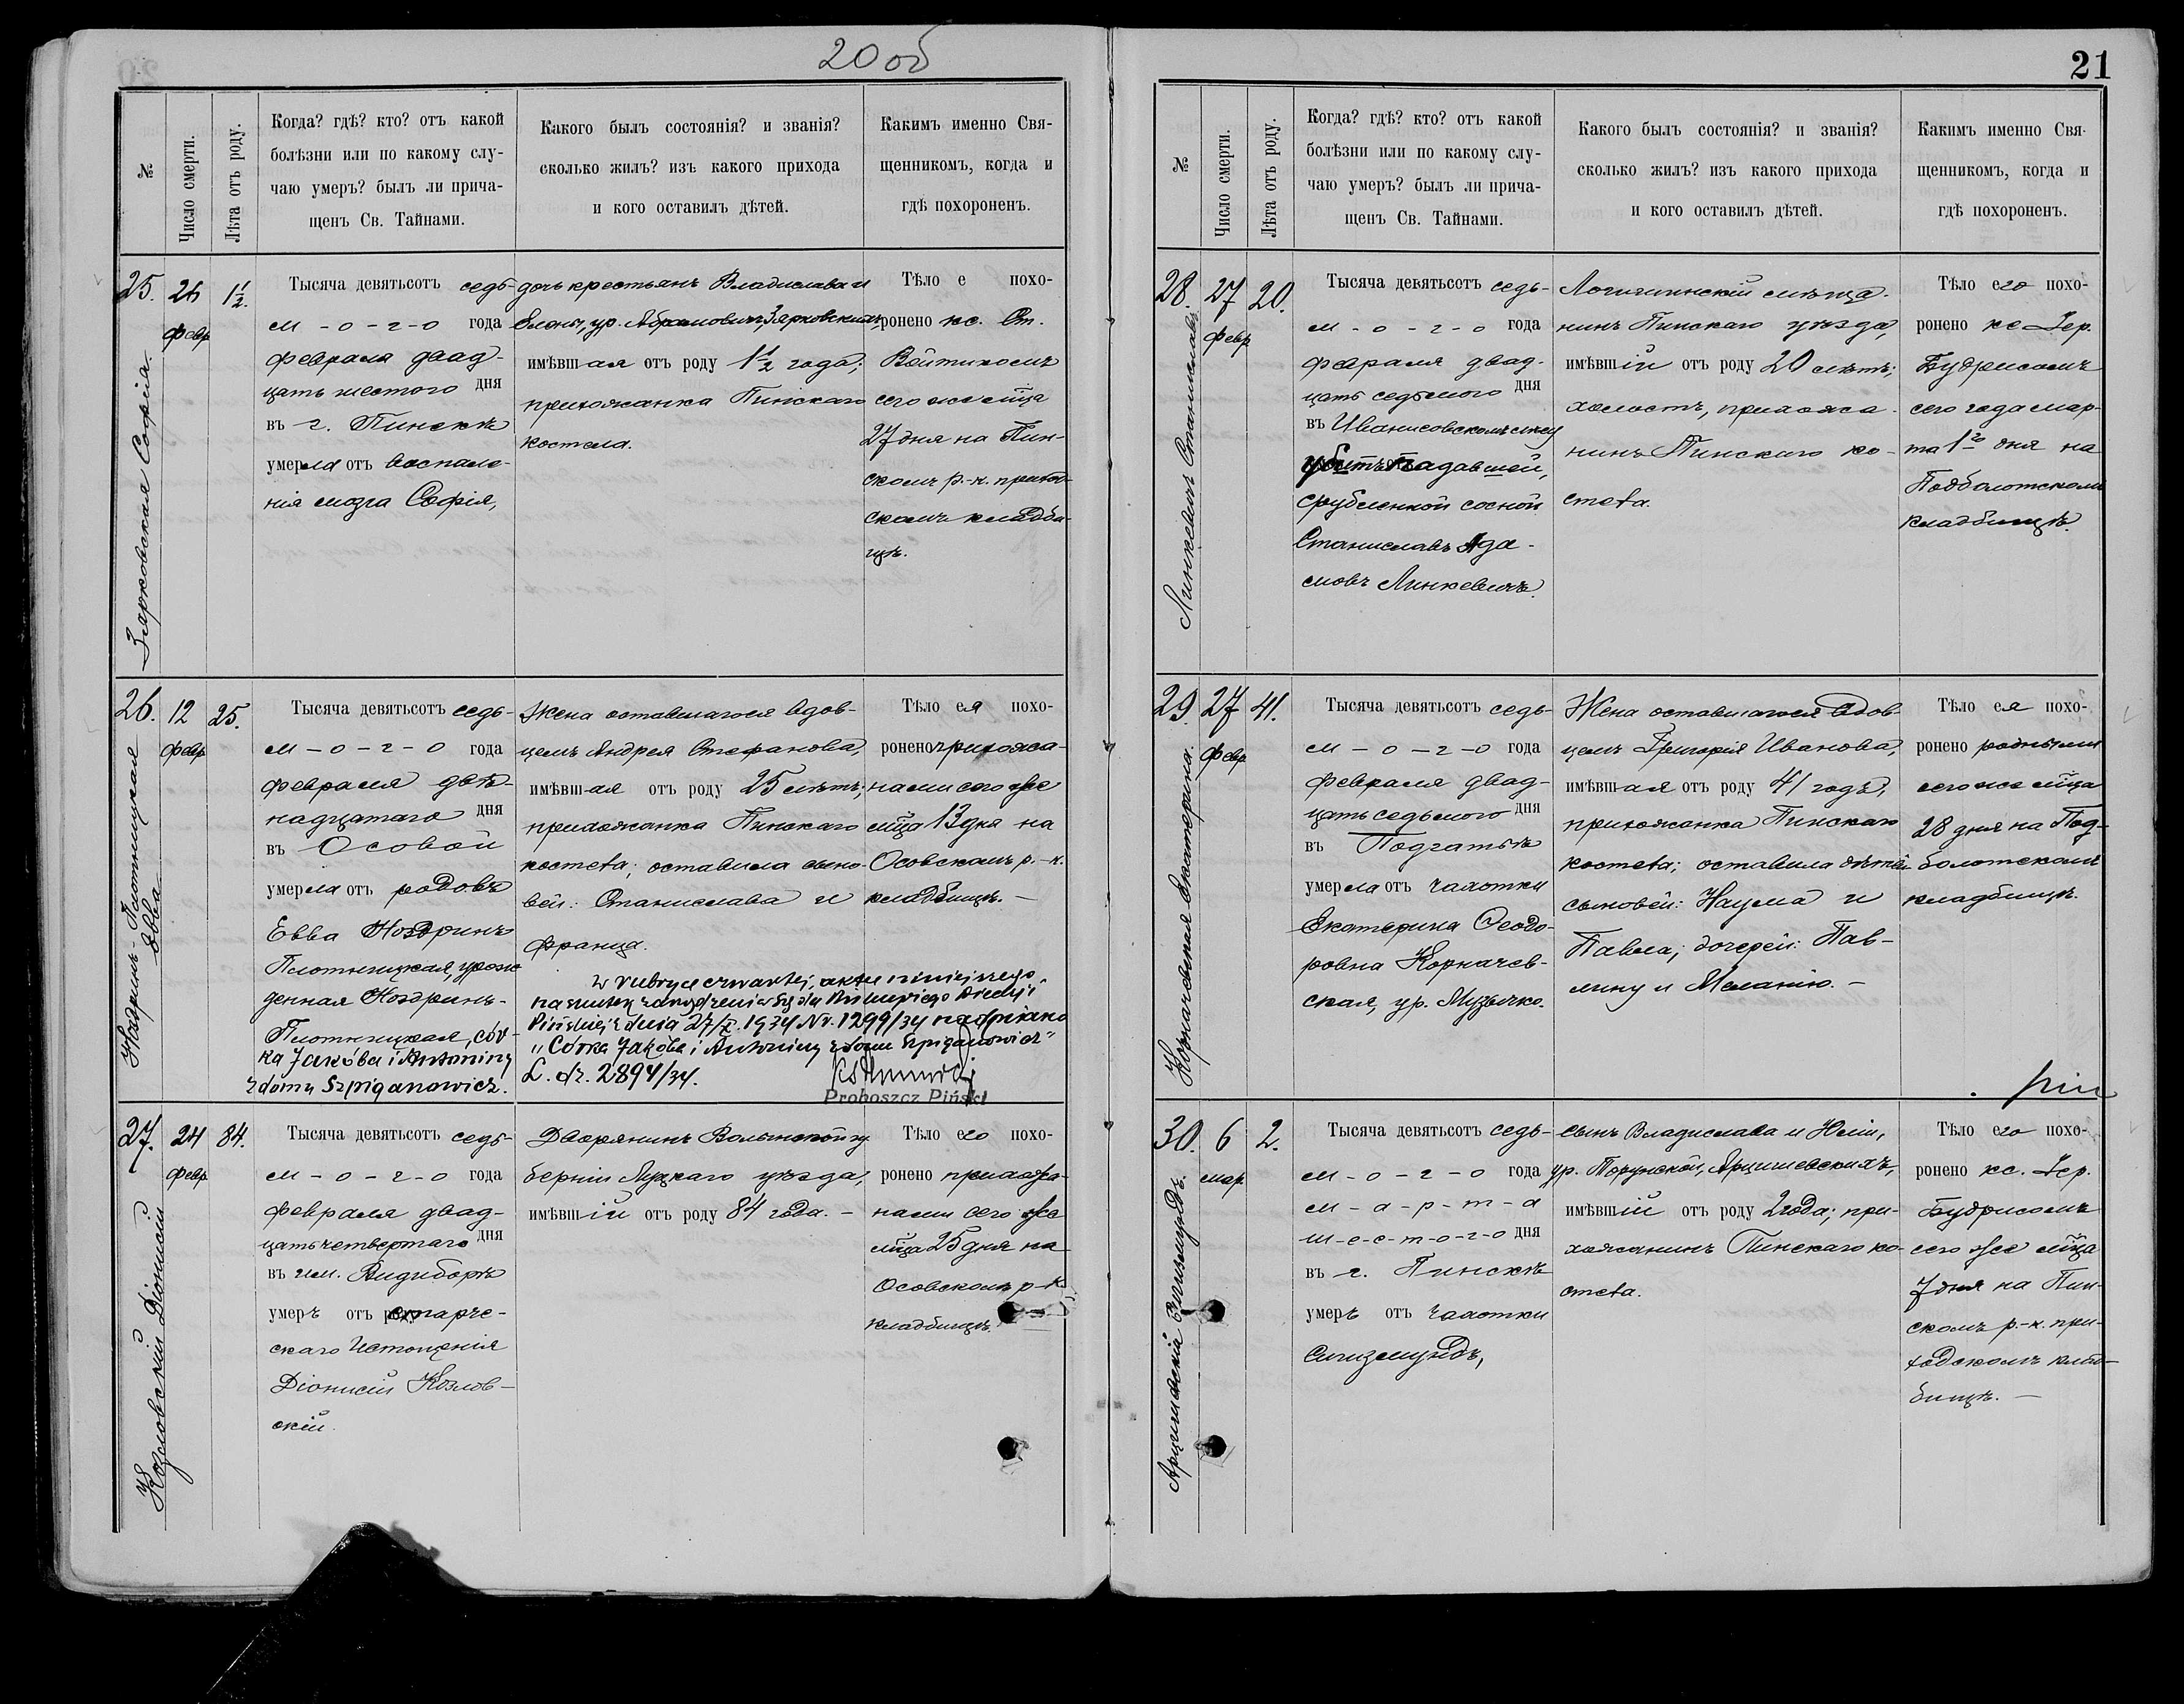 20 об
№
Число смерти.
Лѣта отъ роду.
Когда? гдѣ? кто? отъ какой
болѣзни или по какому слу-
чаю умеръ? былъ ли прича-
щенъ Св. Тайнами.
Какого былъ состоянія? и званія?
сколько жилъ? изъ какого прихода
и кого оставилъ дѣтей.
Какимъ именно Свя-
щенникомъ, когда и
гдѣ похороненъ.
25.
Зярковская Софія.
26
февр
1½.
Тысяча девятьсотъ седь-
м-о-г-о года
февраля двад-
цать шестого дня
въ г. Пинскѣ
умерла отъ воспале-
нія мозга Софія,
дочь крестьянъ Владислава и
Елены, ур. Абрамовичъ, Зярковскихъ,
имѣвшая отъ роду 1½ года;
прихожанка Пинскаго
костела.
Тѣло е похо-
ронено кс. Ст.
Войтикомъ
сего же мѣсяца
27 дня на Пин-
скомъ р.-к. приход-
скомъ кладби-
щѣ.
26.
Ноздринъ-Плотницкая
Евва
12
февр
25.
Тысяча девятьсотъ седь-
м-о-г-о года
февраля двѣ-
надцатаго дня
въ Осовой
умерла отъ родовъ
Евва Ноздринъ
Плотницкая, урож
денная Ноздринъ-
Плотницкая, cór-
ka Jakóba i Antoniny
z domu Szpiganowicz.
Жена оставшагося вдов-
цемъ Андрея Стефанова,
имѣвшая отъ роду 25 лѣтъ;
прихожанка Пинскаго
костеła; оставила сыно-
вей: Станислава и
Франца.
w rubryce czwartej, aktu niniejszego
na skutek zarządzenia Sądu Biskupiego Diecezji
Pińskiej z dnia 27/X. 1934 Nr. 1299/34 nadpisano
„Córka Jakóba i Antoniny z domu Szpiganowicz"
L. dz. 2894/34.
Proboszcz Piński
Тѣло ея похо-
ронено прихожа-
нами сего же
мѣца 13 дня на
Осовскомъ р.-к.
кладбищѣ. —
27.
Козловскій Діонисій
24
февр
84.
Тысяча девятьсотъ седь-
м-о-г-о года
февраля двад-
цать четвертаго дня
въ им. Видиборъ
умеръ отъ старче-
скаго истощенія
Діонисій Козлов-
скій.
Дворянинъ Волынской гу
берніи Луцкаго уѣзда,
имѣвшій отъ роду 84 года. —
Тѣло его похо-
ронено прихожа-
нами сего же
мѣца 25 дня на
Осовскомъ р-к
кладбищѣ.
21
№
Число смерти.
Лѣта отъ роду.
Когда? гдѣ? кто? отъ какой
болѣзни или по какому слу-
чаю умеръ? былъ ли прича-
щенъ Св. Тайнами.
Какого былъ состоянія? и званія?
сколько жилъ? изъ какого прихода
и кого оставилъ дѣтей.
Какимъ именно Свя-
щенникомъ, когда и
гдѣ похороненъ.
28.
Линкевичъ Станиславъ
27
февр
20.
Тысяча девятьсотъ седь-
м-о-г-о года
февраля двад-
цать седьмого дня
въ Иванисовскомъ лѣсу
убитъ падавшей,
срубленной сосной
Станиславъ Ада-
мовъ Линкевичъ.
Логишинскій мѣща-
нинъ Пинскаго уѣзда,
имѣвшій отъ роду 20 лѣтъ;
холостъ, прихожа-
нинъ Пинскаго ко-
стеła.
Тѣло его похо-
ронено кс. Іер.
Будрисомъ
сего года мар-
та 1го дня на
Подболотскомъ
кладбищѣ.
29.
Корначевская Екатерина.
27
февр
41.
Тысяча девятьсотъ седь-
м-о-г-о года
февраля двад-
цать седьмого дня
въ Подгатьѣ
умерла отъ чахотки
Екатерина Ѳеодо-
ровна Корначев-
ская, ур. Музычко.
Жена оставшагося вдов-
цемъ Григорія Иванова,
имѣвшая отъ роду 41 годъ,
прихожанка Пинскаго
костеła; оставила дѣтей
сыновей: Наума и
Павла; дочерей: Пав-
лину и Меланію. —
Тѣло ея похо-
ронено родными
сего же мѣца
28 дня на Под-
болотскомъ
кладбищѣ.
30.
Арцишевскій Сигизмундъ.
6
мар
2.
Тысяча девятьсотъ седь-
м-о-г-о года
м-а-р-т-а
ш-е-с-т-о-г-о дня
въ г. Пинскѣ
умеръ отъ чахотки
Сигизмундъ,
сынъ Владислава и Юліи,
ур. Порунской, Арцишевскихъ,
имѣвшій отъ роду 2 года; при-
хожанинъ Пинскаго ко-
стеła.
Тѣло его похо-
ронено кс. Іер.
Будрисомъ
сего же мѣца
7 дня на Пин-
скомъ р.-к. при-
ходскомъ клад-
бищѣ. —